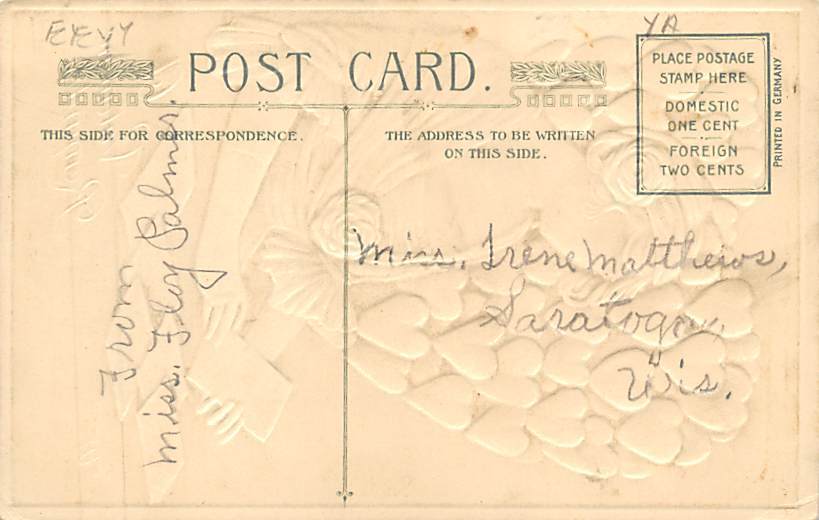 EEVY
YA
POST CARD.
PLACE POSTAGE
STAMP HERE
DOMESTIC
ONE CENT
FOREIGN
TWO CENTS
PRINTED IN GERMANY
THIS SIDE FOR CORRESPONDENCE.
THE ADDRESS TO BE WRITTEN
ON THIS SIDE.
From
Miss. Floy Palmer.
Miss. Irene Matthews,
Saratoga,
Wis.